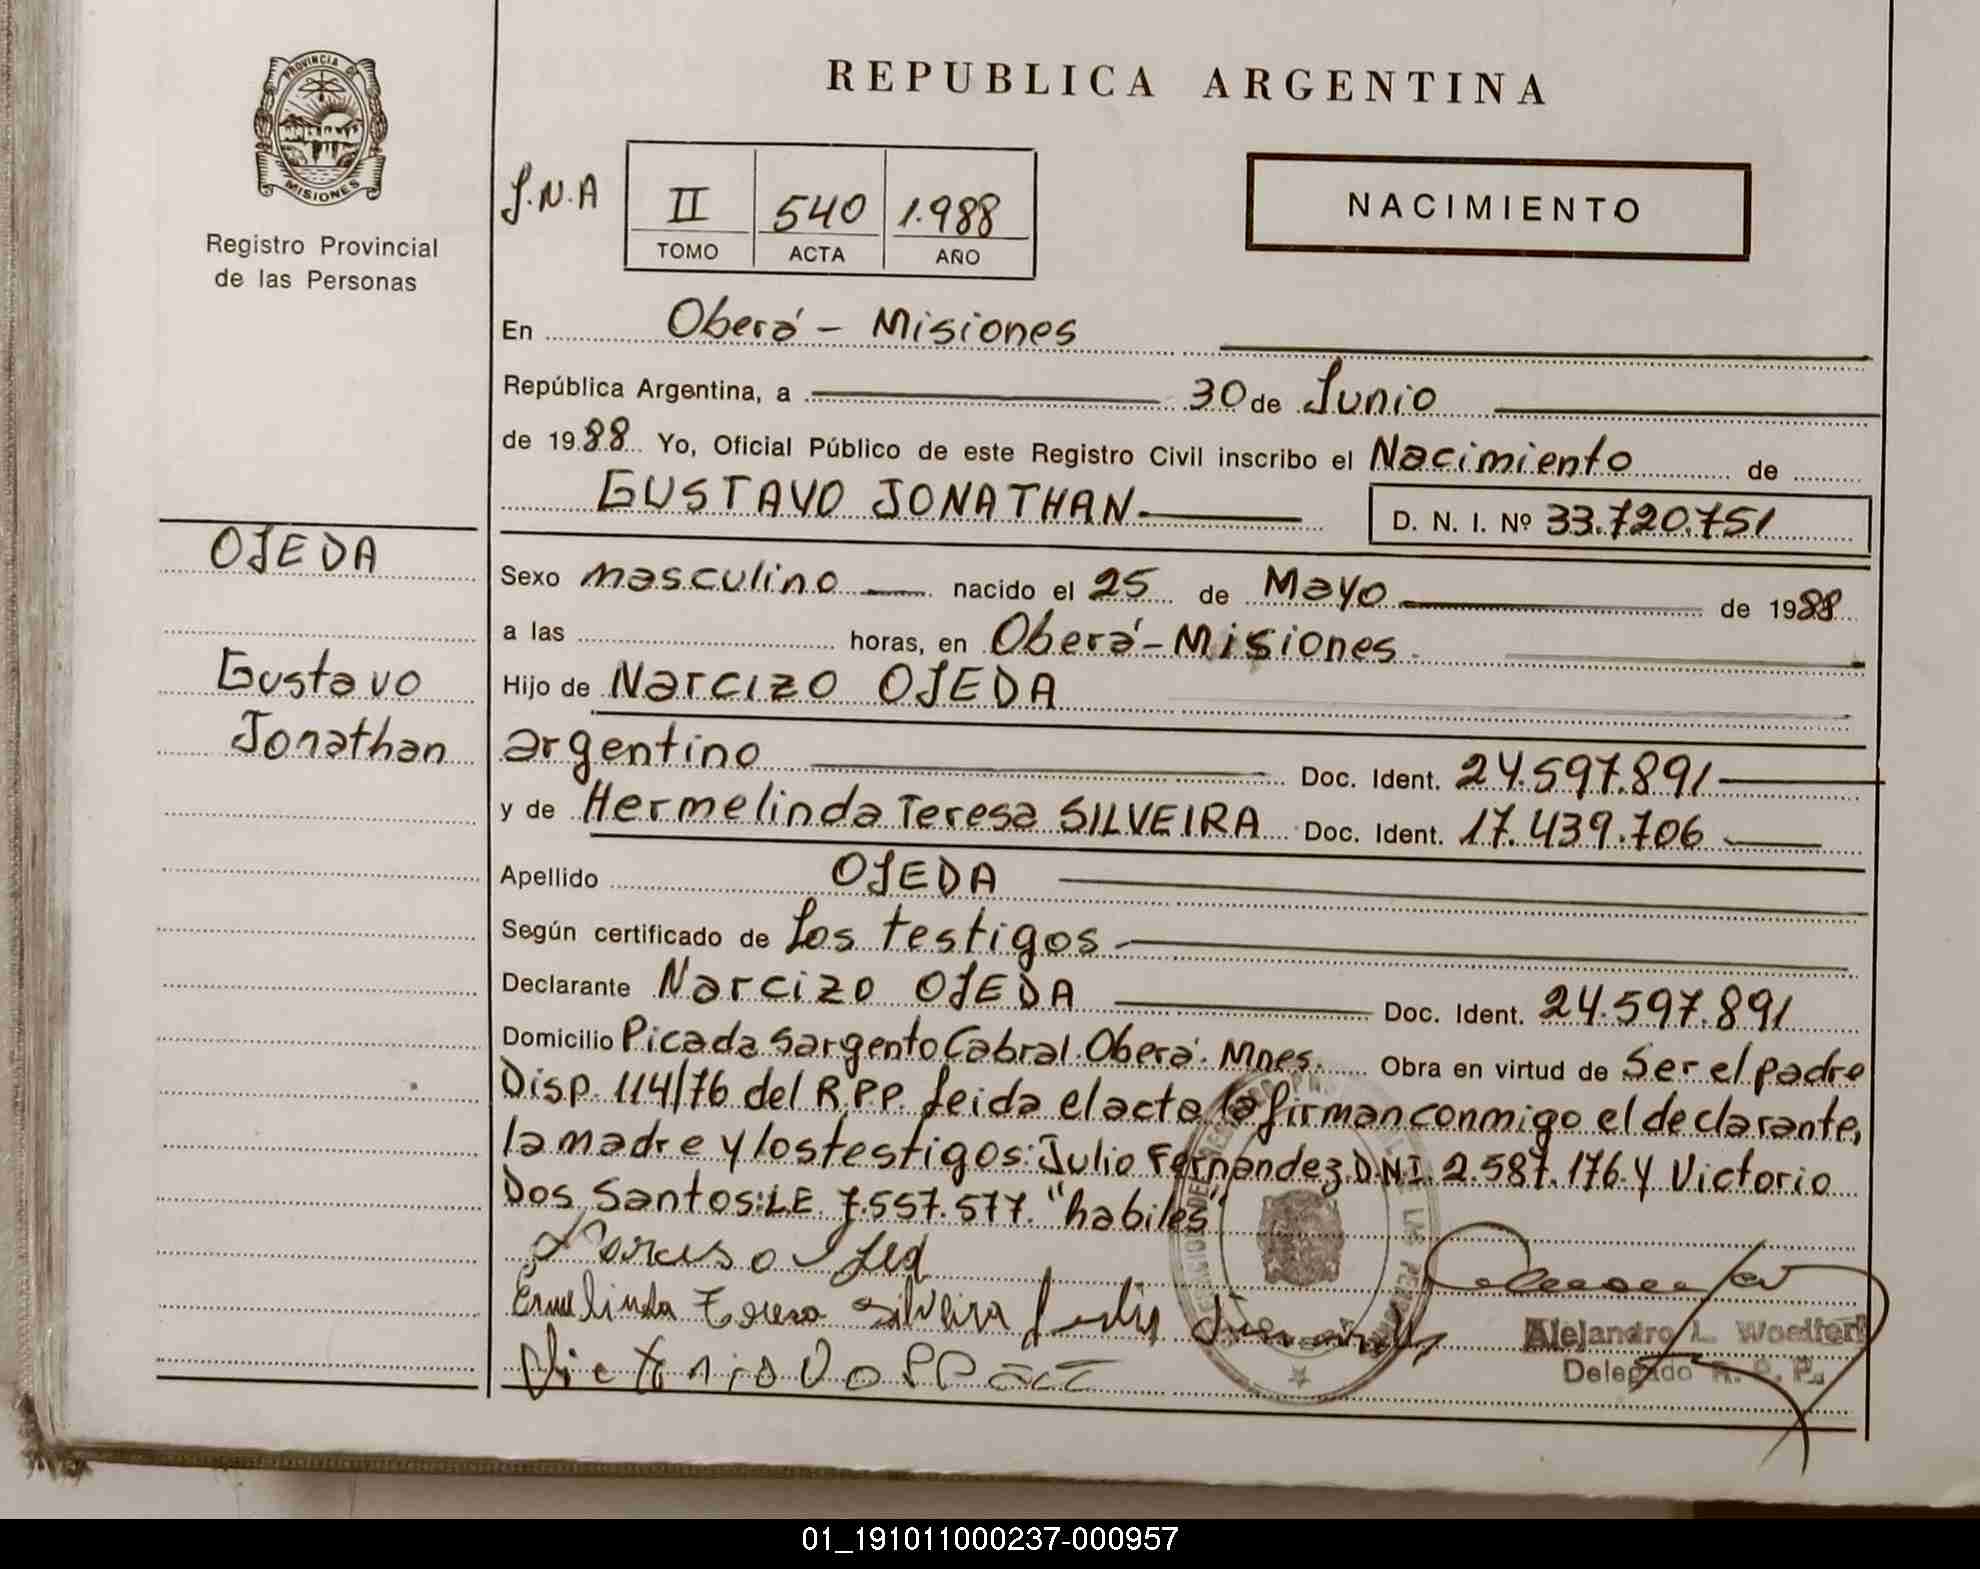 PROVINCIA DE
MISIONES
Registro Provincial
de las Personas
REPUBLICA ARGENTINA
J.N.A II 540 1.988
TOMO ACTA AÑO
NACIMIENTO
En Oberá - Misiones
República Argentina, a 30 de Junio
de 1988 Yo, Oficial Público de este Registro Civil inscribo el Nacimiento de
GUSTAVO JONATHAN D. N. I. Nº 33.720.751
OJEDA
Gustavo
Jonathan
Sexo masculino nacido el 25 de Mayo de 1988
a las horas, en Oberá - Misiones
Hijo de Narcizo OJEDA
argentino Doc. Ident. 24.597.891
y de Hermelinda Teresa SILVEIRA Doc. Ident. 17.439.706
Apellido OJEDA
Según certificado de Los testigos
Declarante Narcizo OJEDA Doc. Ident. 24.597.891
Domicilio Picada Sargento Cabral. Oberá. Mnes. Obra en virtud de Ser el padre
Disp. 114/76 del R.P.P. Leida el acta la firman conmigo el declarante,
la madre y los testigos: Julio Fernandez D.N.I. 2.587.176 y Victorio
Dos Santos: L.E. 7.557.577. "habiles"
Ermelinda Teresa Silveira
Alejandro L. Woelfert
Delegado R. P. P.
01_191011000237-000957